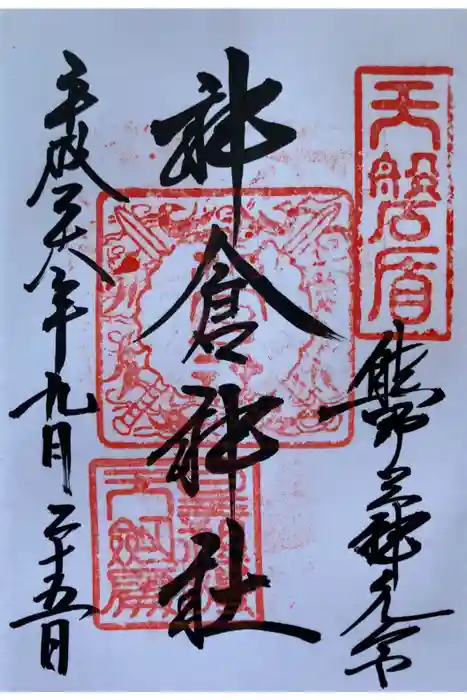 天磐盾
熊野三神元宮
神倉神社
平成二十八年九月二十五日